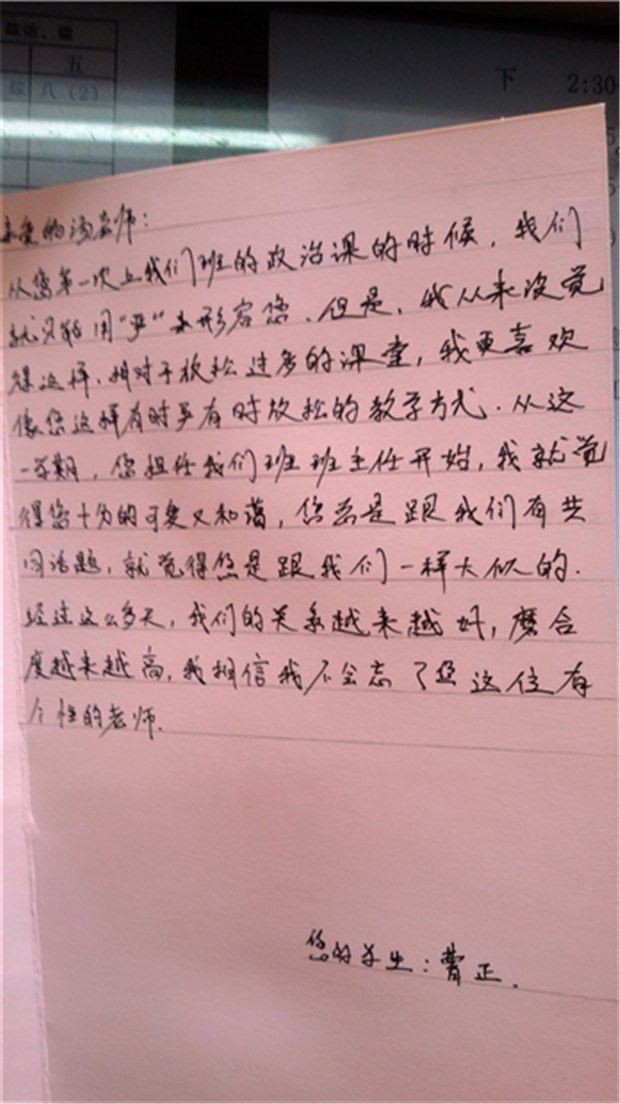 政治、综
五
综 八（2）
下 2:30
亲爱的汤老师：
从您第一次上我们班的政治课的时候，我们
就只能用“严”来形容您．但是，我从来没觉
得这样．相对于放松过多的课堂，我更喜欢
像您这样有时严有时放松的教学方式．从这
一学期，您担任我们班班主任开始，我就觉
得您十分的可爱又和谐，您总是跟我们有共
同话题，就觉得您是跟我们一样大似的．
经过这么多天，我们的关系越来越好，磨合
度越来越高，我相信我不会忘了您这位有
个性的老师．
您的学生：曹正．